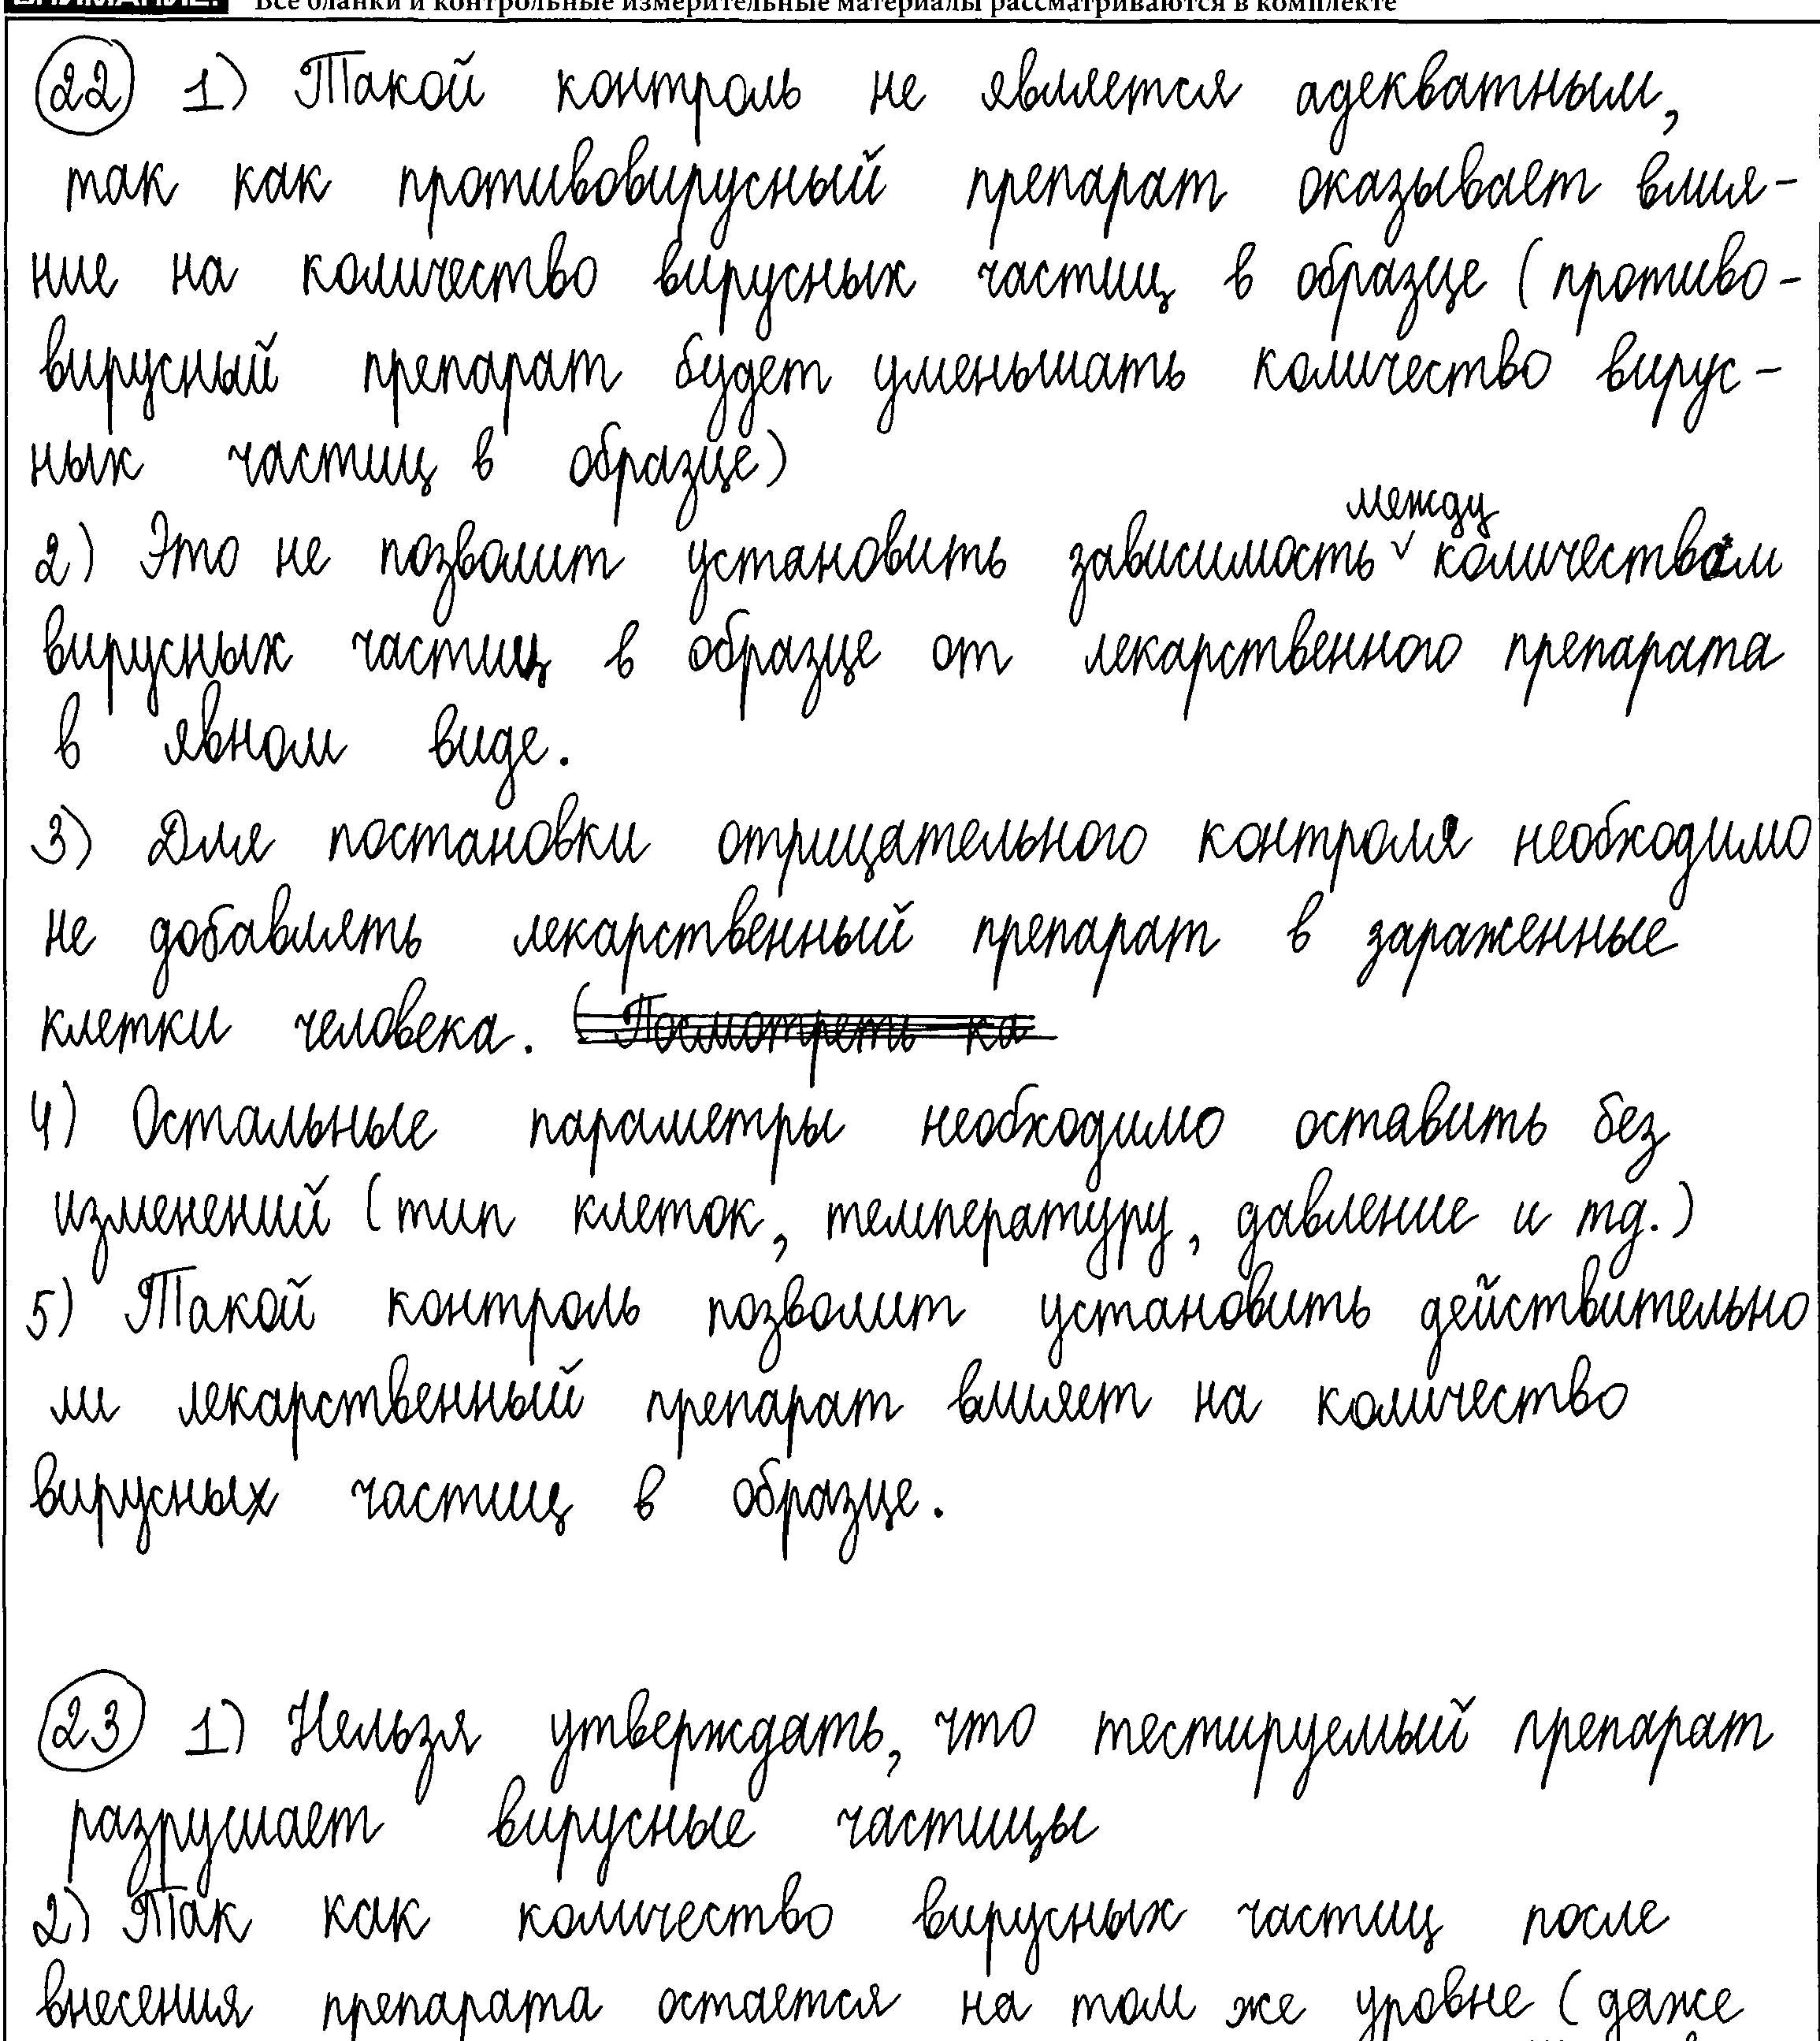 ВНИМАНИЕ! Все бланки и контрольные измерительные материалы рассматриваются в комплекте
22 1) Такой контроль не является адекватным,
так как противовирусный препарат оказывает влия-
ние на количество вирусных частиц в образце (противо-
вирусный препарат будет уменьшать количество вирус-
ных частиц в образце)
2) Это не позволит установить зависимость между количеством
вирусных частиц в образце от лекарственного препарата
в явном виде.
3) Для постановки отрицательного контроля необходимо
не добавлять лекарственный препарат в зараженные
клетки человека. (Посмотреть ка
4) Остальные параметры необходимо оставить без
изменений (тип клеток, температуру, давление и тд.)
5) Такой контроль позволит установить действительно
ли лекарственный препарат влияет на количество
вирусных частиц в образце.
23 1) Нельзя утверждать, что тестируемый препарат
разрушает вирусные частицы
2) Так как количество вирусных частиц после
внесения препарата остается на том же уровне (даже